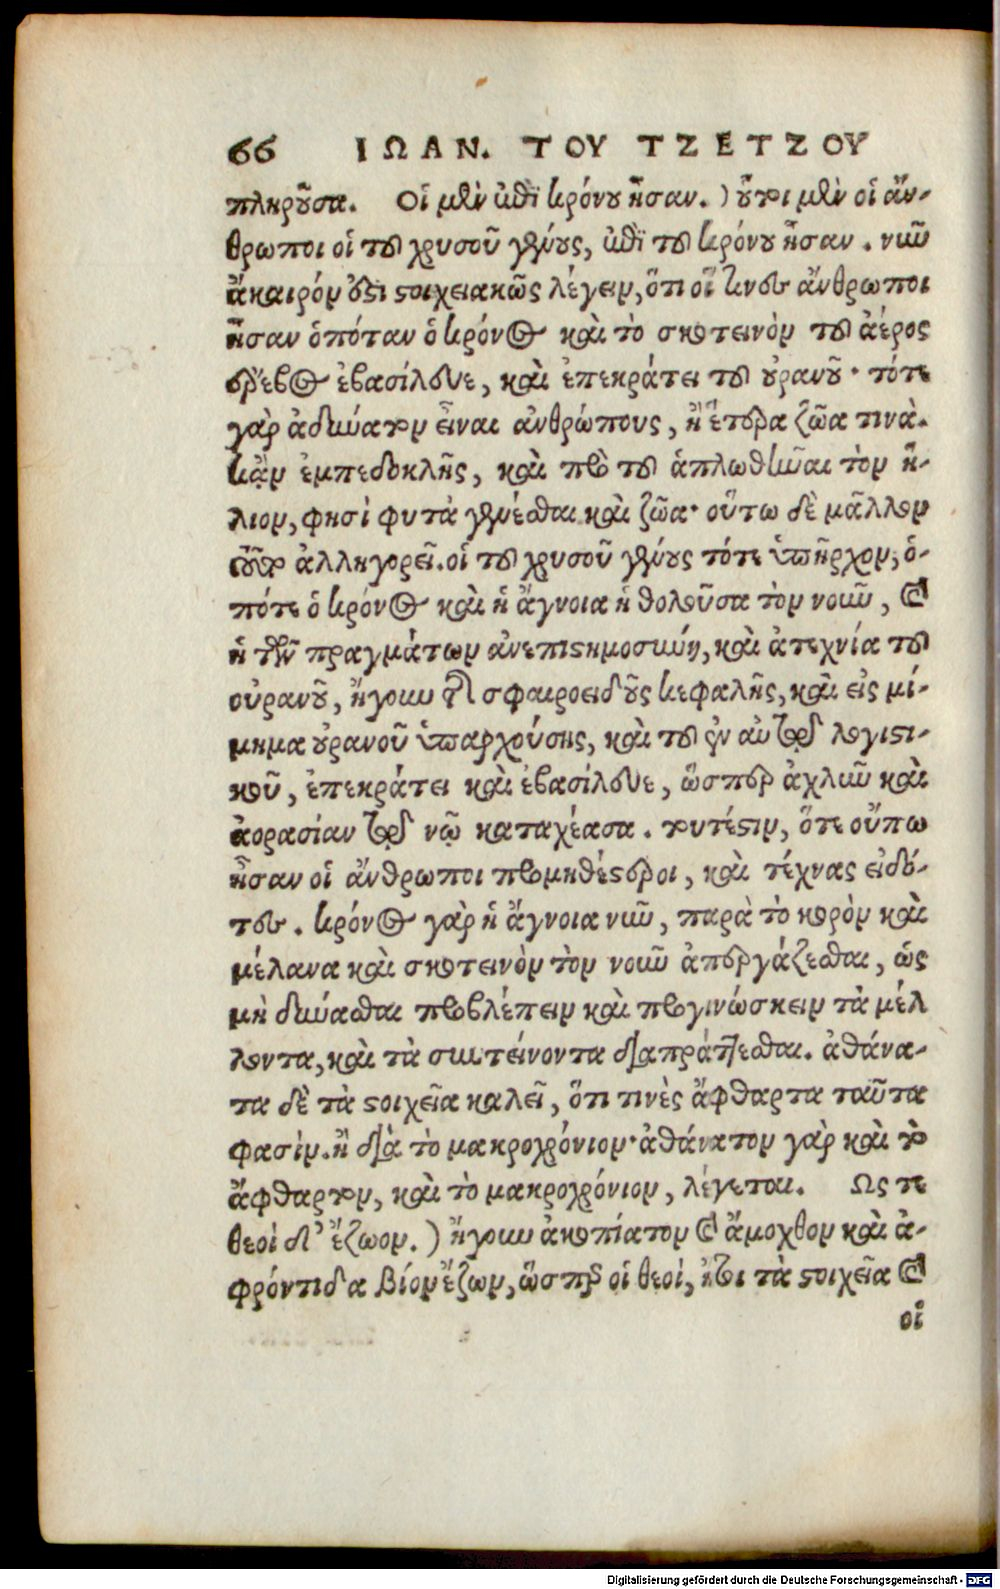 66 ΙΩΑΝ. ΤΟΥ ΤΖΕΤΖΟΥ
πληροῦσα. Οἱ μὲν ἐπὶ κρόνου ἦσαν.) οὗτοι μὲν οἱ ἄν-
θρωποι οἱ τοῦ χρυσοῦ γένους, ἐπὶ τοῦ κρόνου ἦσαν. νῦν
ἄκαιρόν ἐστι στοιχειακῶς λέγειν, ὅτι οἵ τινες ἄνθρωποι
ἦσαν ὁπόταν ὁ κρόνος καὶ τὸ σκοτεινὸν τοῦ ἀέρος
ἔρεβος ἐβασίλευε, καὶ ἐπεκράτει τοῦ οὐρανοῦ· τότε
γὰρ ἀδύνατον εἶναι ἀνθρώπους, ἢ ἕτερα ζῶα τινὰ.
κἂν ἐμπεδοκλῆς, καὶ πρὸ τοῦ ἁπλωθῆναι τὸν ἥ-
λιον, φησὶ φυτὰ γενέσθαι καὶ ζῶα· οὕτω δὲ μᾶλλον
οὖν ἀλληγορεῖ. οἱ τοῦ χρυσοῦ γένους τότε ὑπῆρχον, ὁ-
πότε ὁ κρόνος καὶ ἡ ἄγνοια ἡ θολοῦσα τὸν νοῦν, καὶ
ἡ τῶν πραγμάτων ἀνεπιστημοσύνη, καὶ ἀτεχνία τοῦ
οὐρανοῦ, ἤγουν τῆς σφαιροειδοῦς κεφαλῆς, καὶ εἰς μί-
μημα οὐρανοῦ ὑπαρχούσης, καὶ τοῦ ἐν αὐτῇ λογιστι-
κοῦ, ἐπεκράτει καὶ ἐβασίλευε, ὥσπερ ἀχλὺν καὶ
ἀορασίαν τῷ νῷ καταχέασα. τουτέστιν, ὅτε οὔπω
ἦσαν οἱ ἄνθρωποι προμηθέστεροι, καὶ τέχνας εἰδό-
τες. κρόνος γὰρ ἡ ἄγνοια νῦν, παρὰ τὸ κορὸν καὶ
μέλανα καὶ σκοτεινὸν τὸν νοῦν ἀπεργάζεσθαι, ὡς
μὴ δύνασθαι προβλέπειν καὶ προγινώσκειν τὰ μέλ
λοντα, καὶ τὰ συντείνοντα διαπράττεσθαι. ἀθάνα-
τα δὲ τὰ στοιχεῖα καλεῖ, ὅτι τινὲς ἄφθαρτα ταῦτα
φασὶν. ἢ διὰ τὸ μακροχρόνιον· ἀθάνατον γὰρ καὶ τὸ
ἄφθαρτον, καὶ τὸ μακροχρόνιον, λέγεται. Ως τε
θεοὶ δ' ἔζωον.) ἤγουν ἀκοπίατον καὶ ἄμοχθον καὶ ἀ-
φρόντιδα βίον ἔζων, ὥσπερ οἱ θεοὶ, ἤτοι τὰ στοιχεῖα καὶ
οἱ
Digitalisierung gefördert durch die Deutsche Forschungsgemeinschaft - DFG